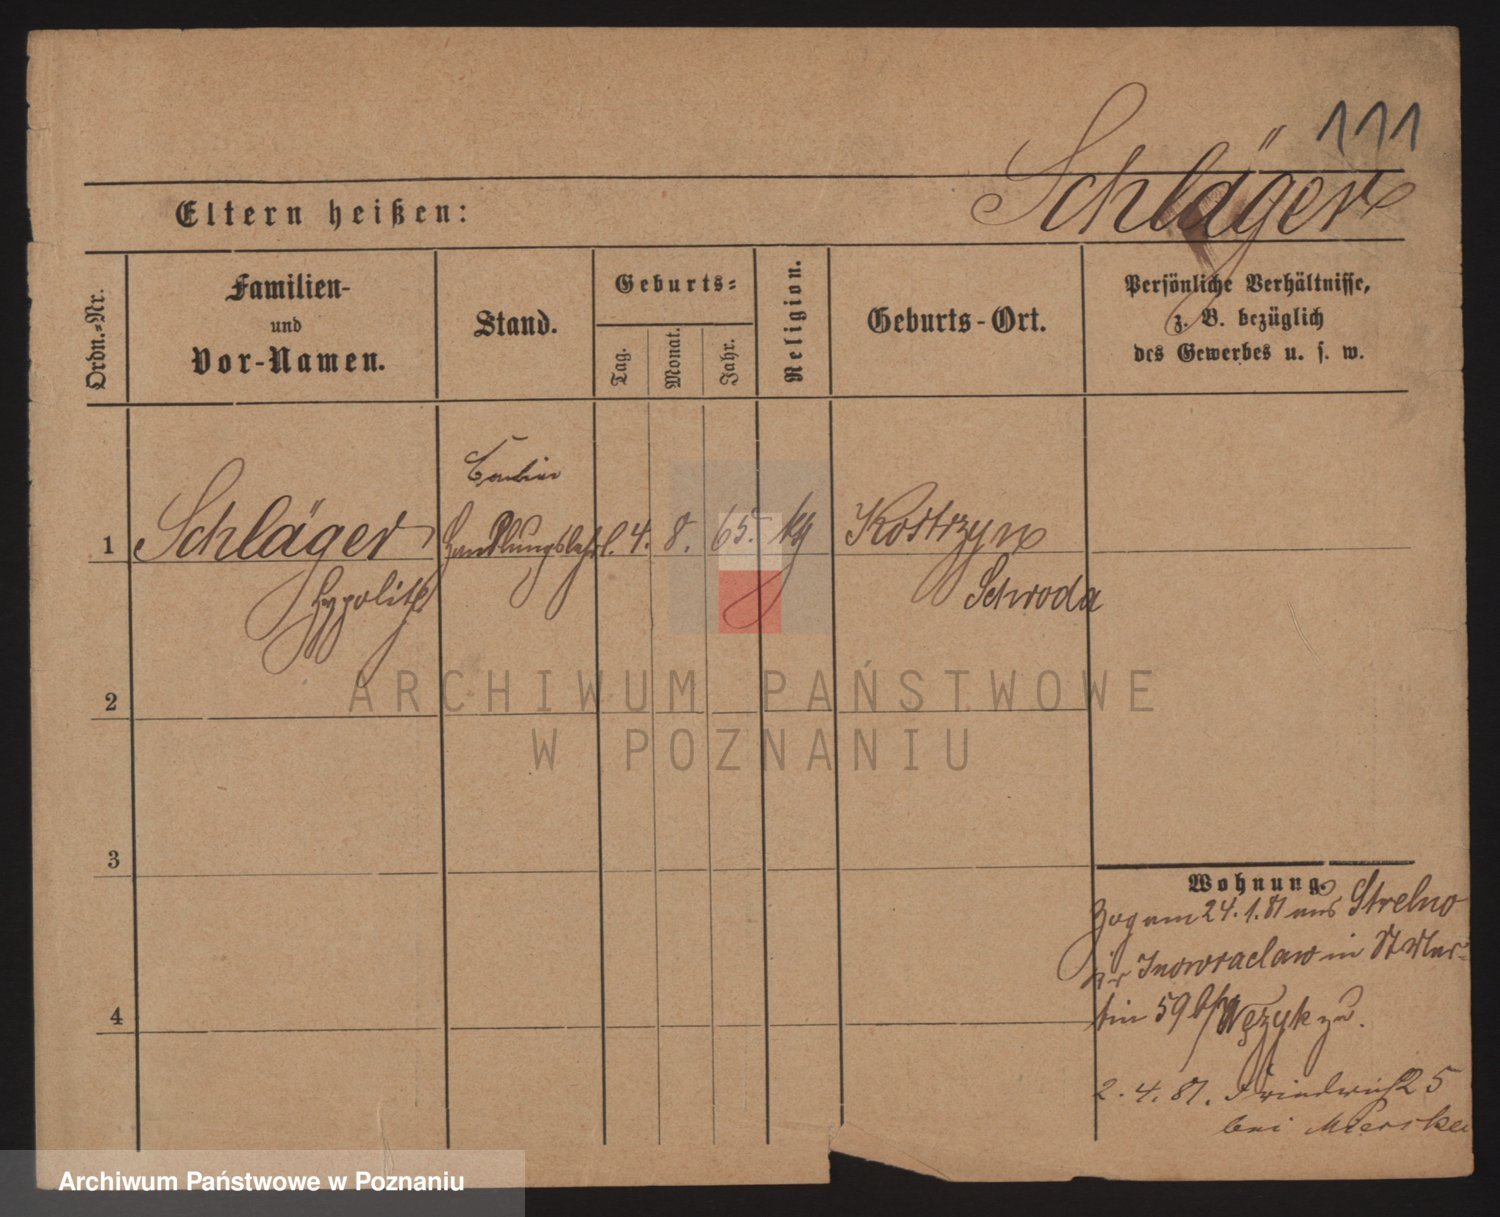 111
Schläger
Eltern heißen:
Ordn.-Nr.
Familien-
und
Vor-Namen.
Stand.
Geburts-
Tag.
Monat.
Jahr.
Religion.
Geburts-Ort.
Persönliche Verhältnisse,
z. B. bezüglich
des Gewerbes u. s. w.
1 Schläger Handlungslehrl. 4. 8. 65. kg Kostrzyn
Hypolit Schroda
2
3
4
Wohnung.
Zog am 24.1.81 aus Strelno
Kr Inowraclaw in St Mar-
tin 59 b/ Węzyk zu.
2. 4. 81. Friedrichst 25
bei Mierska
ARCHIWUM PAŃSTWOWE
W POZNANIU
Archiwum Państwowe w Poznaniu